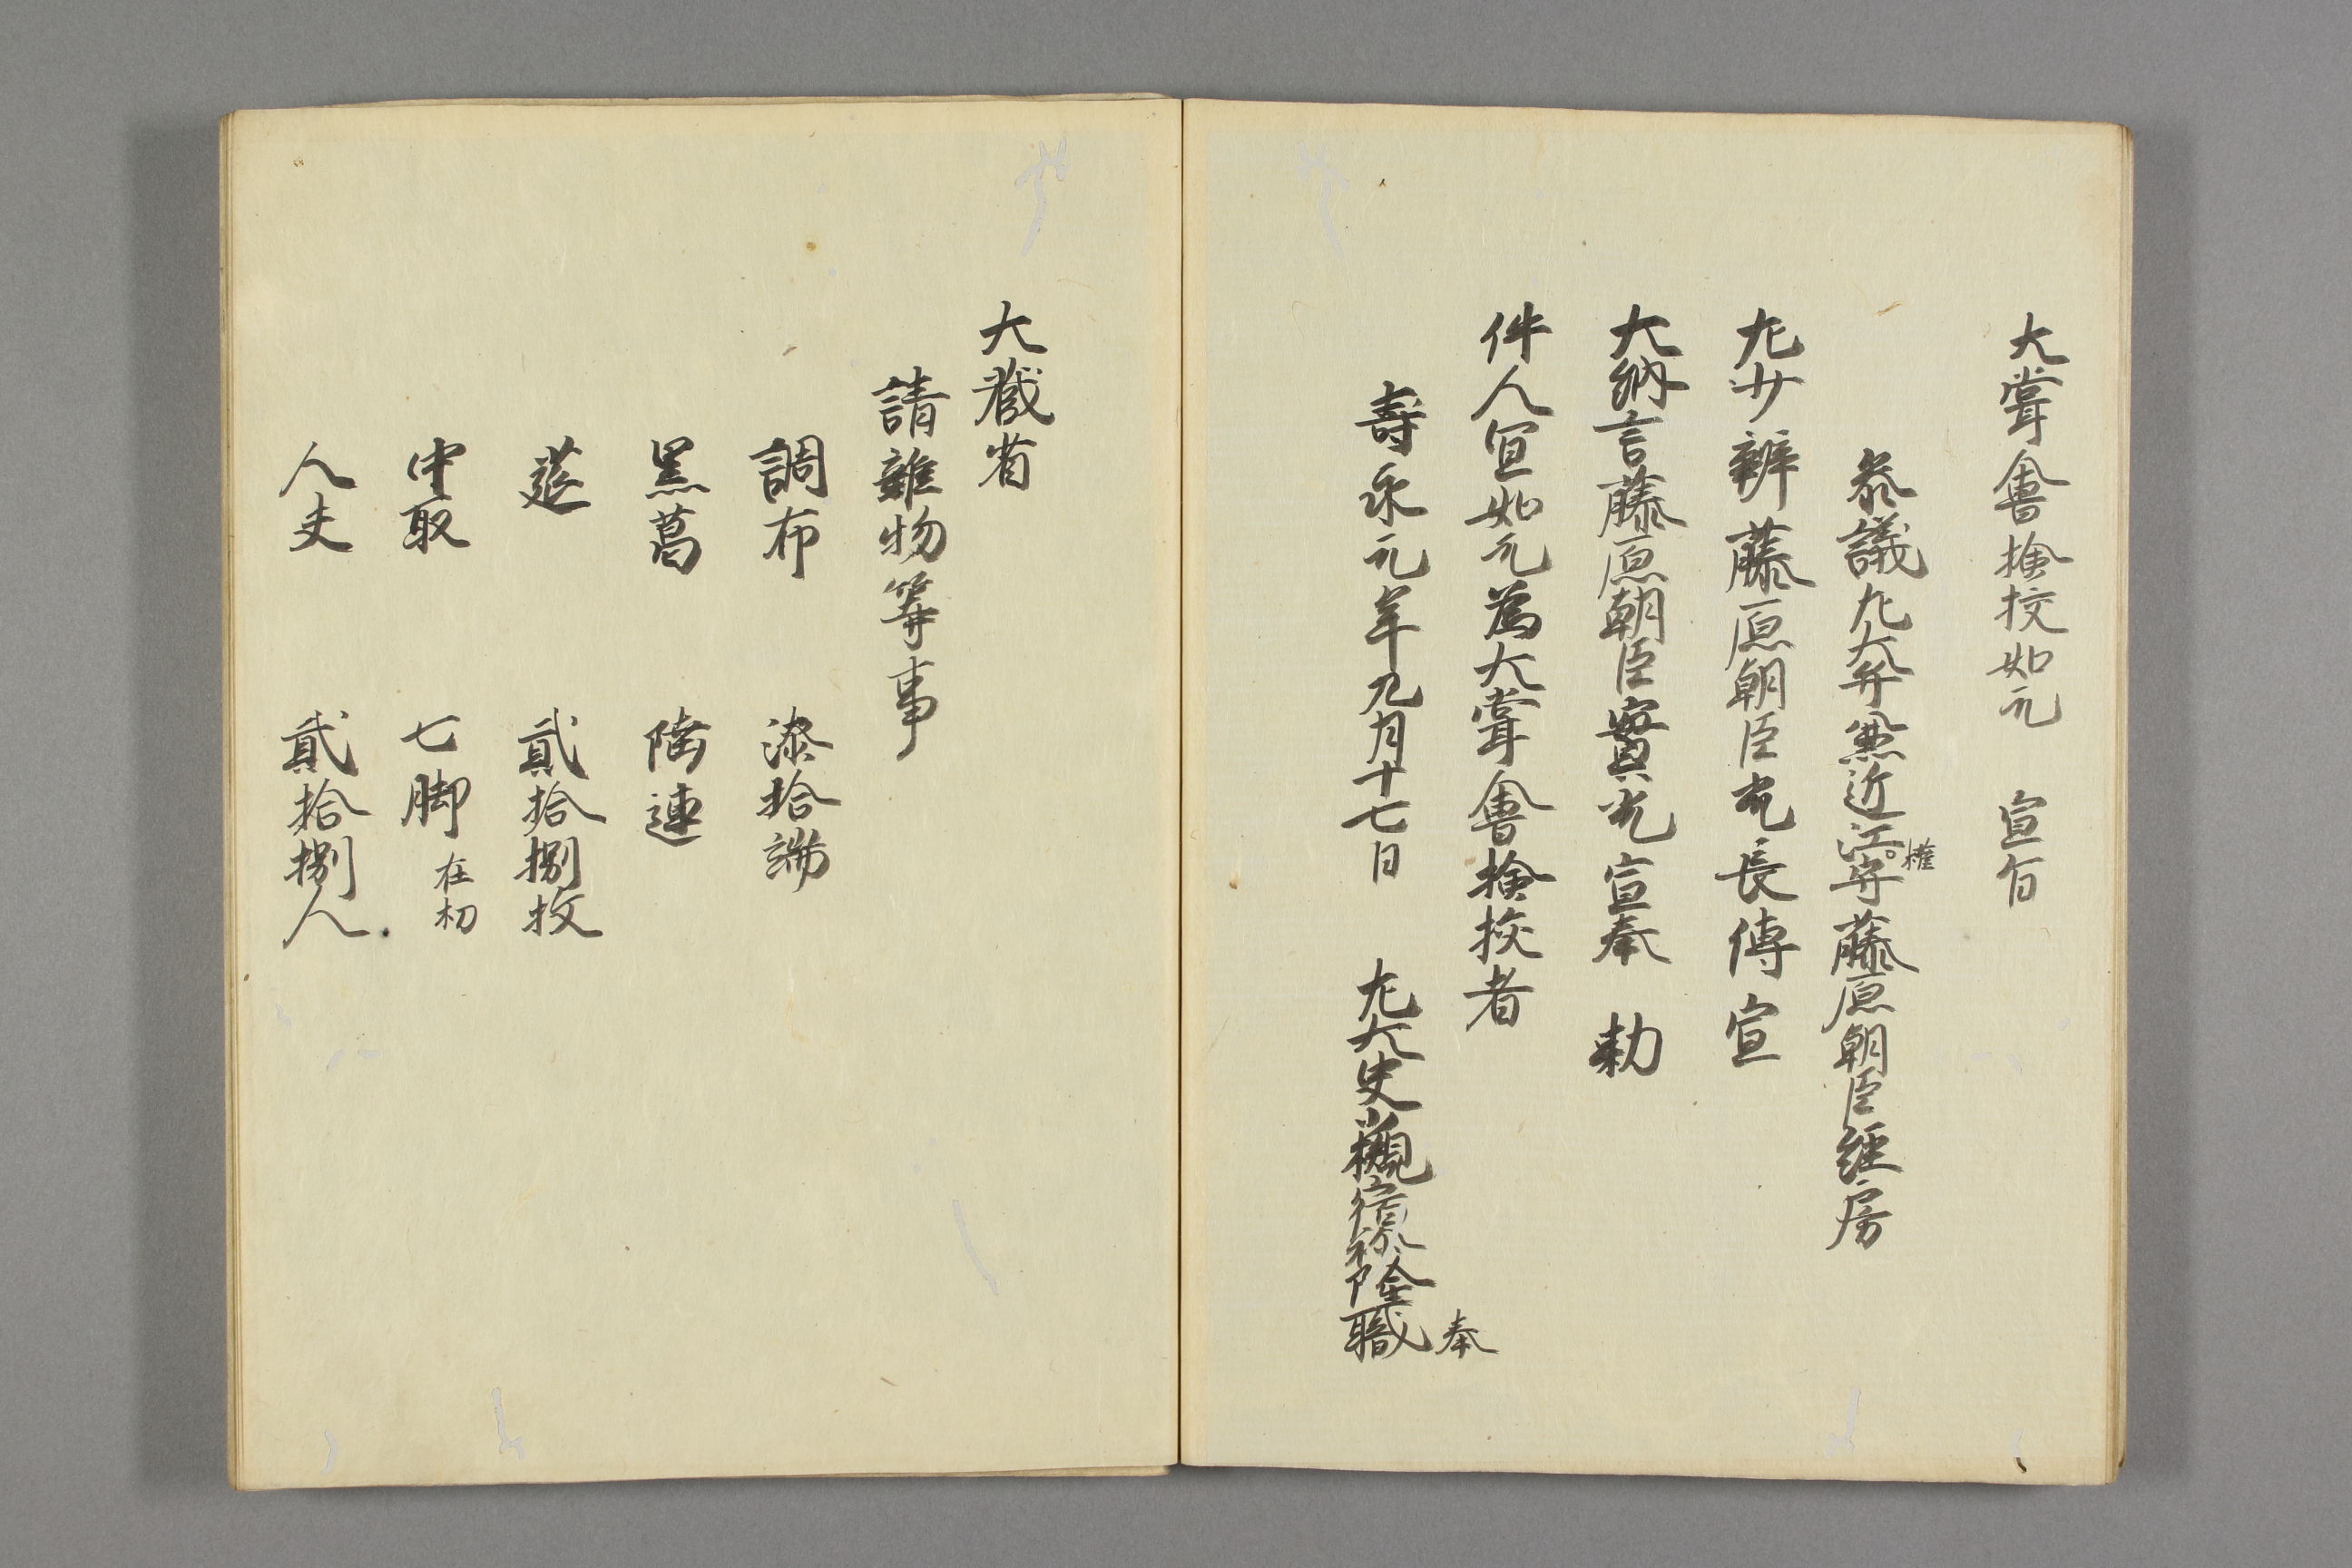 大嘗會撿挍如元　宣旨
参議左大弁兼近江權守藤原朝臣経房
左少辨藤原朝臣光長傳宣
大納言藤原朝臣實㝎宣奉　勅
件人宜如元為大嘗會撿挍者
壽永元年九月十七日　左大史小槻宿祢隆職奉
大蔵省
請雜物等事
調布　漆拾端
黒葛　陸連
莚　貳拾捌枚
中取　七脚在杁
人夫　貳拾捌人